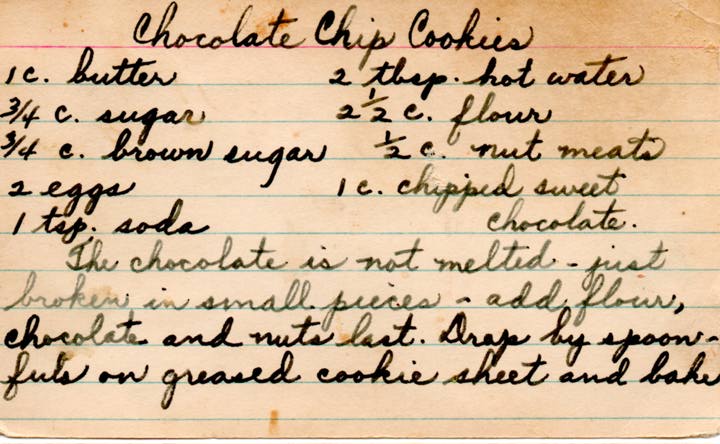 Chocolate Chip Cookies
1 c. butter 2 tbsp. hot water
3/4 c. sugar 2 1/2 c. flour
3/4 c. brown sugar 1/2 c. nut meats
2 eggs 1 c. chipped sweet
1 tsp. soda chocolate.
The chocolate is not melted - just
broken in small pieces - add flour,
chocolate and nuts last. Drop by spoon-
fuls on greased cookie sheet and bake